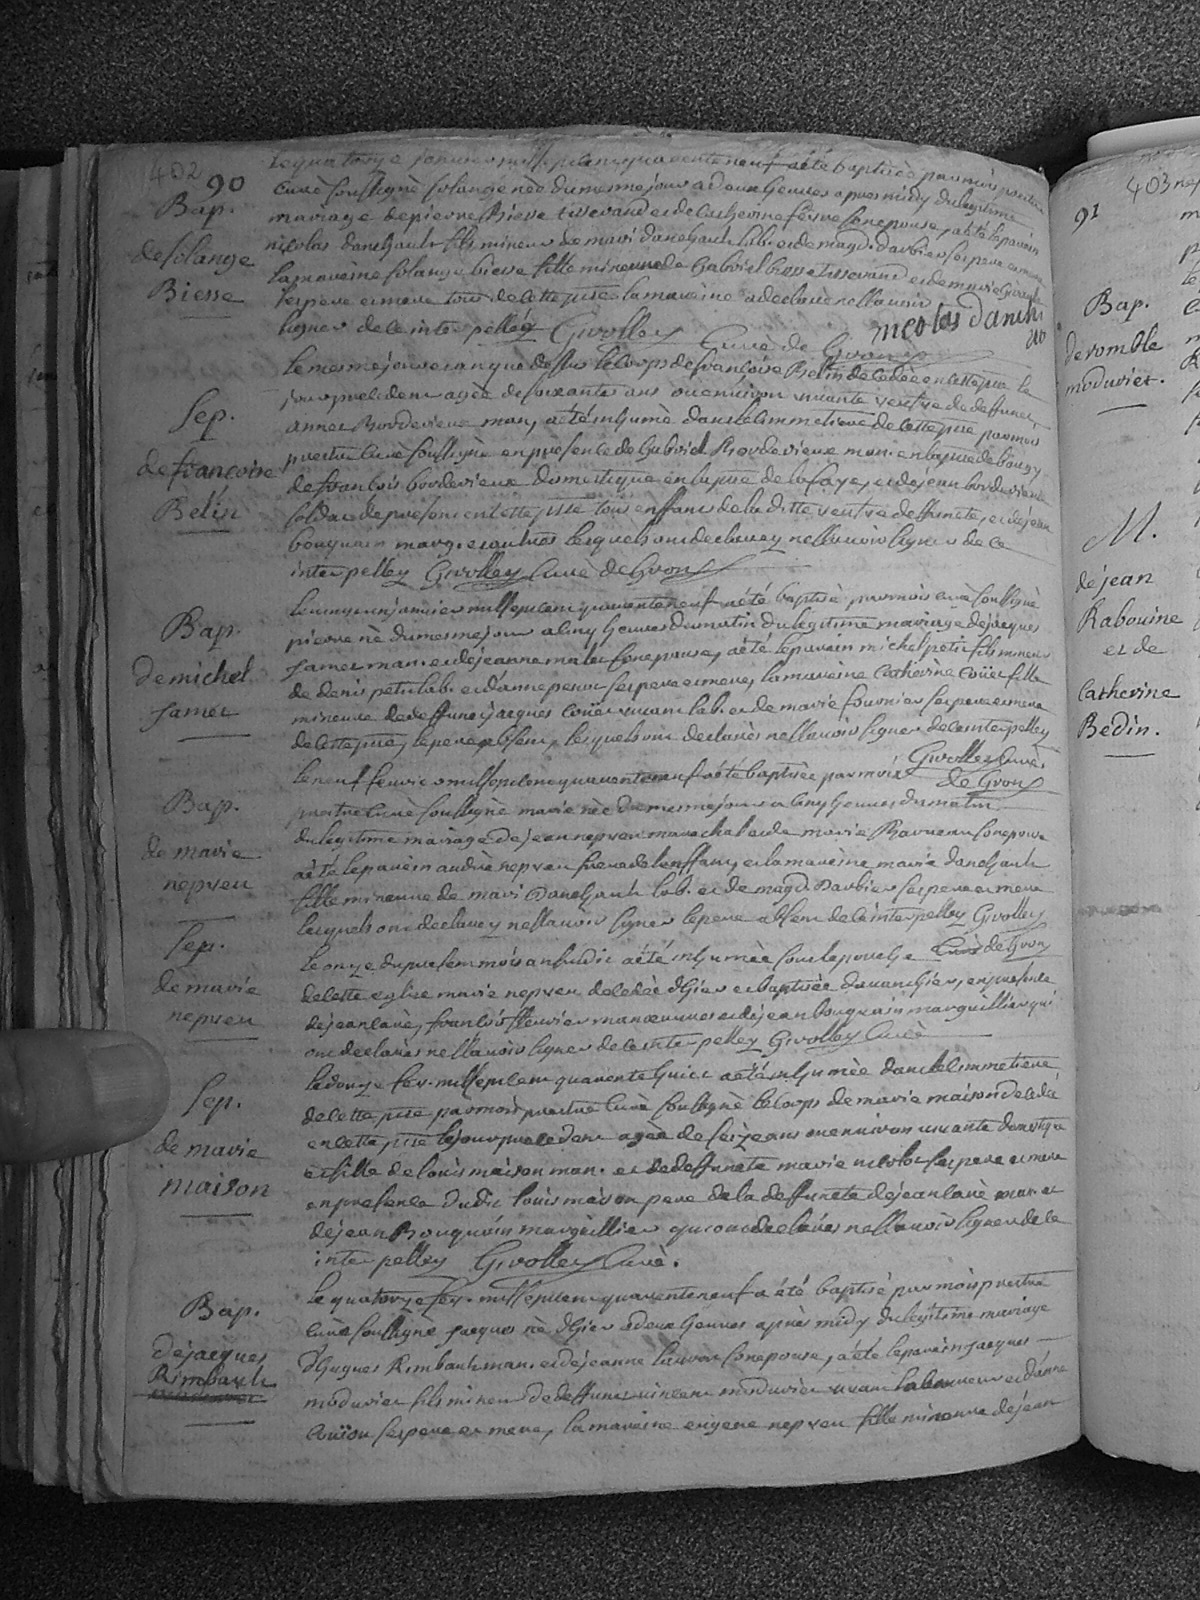 402
90
Bap.
de solange
Biesse
le quatorze janvier mil sept cent quarente neuf a été baptisée par mois prestre
curé soussigné solange née du mesme jour a deux heures apres midy du legitime
mariage de pierre Biesse tisserand et de catherine fevre son epouse, a été le parain
nicolas danchault fils mineur de mari danchault lab. et de magd. darbier ses pere et mere
la mareine solange biesse fille mineure de Gabriel biesse tisserand et de marie
ses pere et mere tous de cette pisse la mareine a declaré ne sçavoir
signer de ce interpellée Givolley Curé de Gron
nicolas danch
ao
Sep.
de françoise
Belin
le mesme jour et an que dessus le corps de françoise Belin decedée en cette pisse le
jour precedent agée de soixante ans ou environ vivante veufve de deffunct
annet Bordevieux man, a été inhumé dans le cimmetiere de cette pisse par mois
prestre curé soussigné en presence de Gabriel Bordevieux man. en la pisse de bougy
de françois bordevieux domestique en la pisse de la faye, et de jean bordevieux
soldat de present en cette pisse tous enffans de la ditte veufve deffuncte, et de jean
bouquain marg. et autres lesquels ont declarez ne sçavoir signer de ce
interpelley Givolley Curé de Gron
Bap.
de michel
famet
le vingt un janvier mil sept cent quarente neuf a été baptisé par mois curé soussigné
pierre né du mesme jour a cinq heures du matin du legitime mariage de jacques
famet man. et de jeanne malet son epouse, a été le parain michel petit fils mineur
de denis petit lab. et d'anne perot ses pere et mere, la mareine catherine coüet fille
mineure de deffunct jacques coüet vivant lab. et de marie fournier ses pere et mere
de cette pisse, le pere absent, lesquels ont declarés ne sçavoir signer de ce interpelley
Givolley curé
de Gron
Bap.
de marie
nepveu
le neuf fevrier mil sept cent quarente neuf a été baptisée par mois
prestre curé soussigné marie née du mesme jour a cinq heures du matin
du legitime mariage de jean nepveu marechal et de marie Barneau son epouse
a été le parain andré nepveu frere de l'enffant, et la mareine marie danchault
fille mineure de mari danchault lab. et de magd. Darbier ses pere et mere
lesquels ont declarez ne sçavoir signer le pere absent de ce interpelley Givolley
Curé de Gron
Sep.
de marie
nepveu
le onze du present mois an susdit a été inhumée sous le porche
de cette eglise marie nepveu decedée d'hier et baptisée d'avanthier, en presence
de jean lavé, françois fleurier manœuvres et de jean bouquain marguillier qui
ont declarés ne sçavoir signer de ce interpelley Givolley Curé
Sep.
de marie
maison
le douze fev. mil sept cent quarente huict a été inhumée dans le cimmetiere
de cette pisse par mois prestre curé soussigné le corps de marie maison decedé
en cette pisse le jour precedent agée de seize ans ou environ vivante domestique
et fille de loüis maison man. et de deffuncte marie nicolot ses pere et mere
en presence dudit loüis maison pere de la deffuncte de jean lavé man. et
de jean Bouquain marguillier qui ont declarés ne sçavoir signer de ce
interpelley Givolley Curé.
Bap.
de jacques
Rimbault
le quatorze fev. mil sept cent quarente neuf a été baptisé par mois prestre
curé soussigné jacques né d'hier a deux heures après midy du legitime mariage
d'hugues Rimbault man. et de jeanne lauron son epouse, a été le parain jacques
moduvier fils mineur de deffunct vincent moduvier vivant laboureur et d'anne
ses pere et mere, la mareine eugene nepveu fille mineure de jean
403
91
Bap.
de romble
moduvier.
M.
de jean
Rabouine
et de
catherine
Bedin.